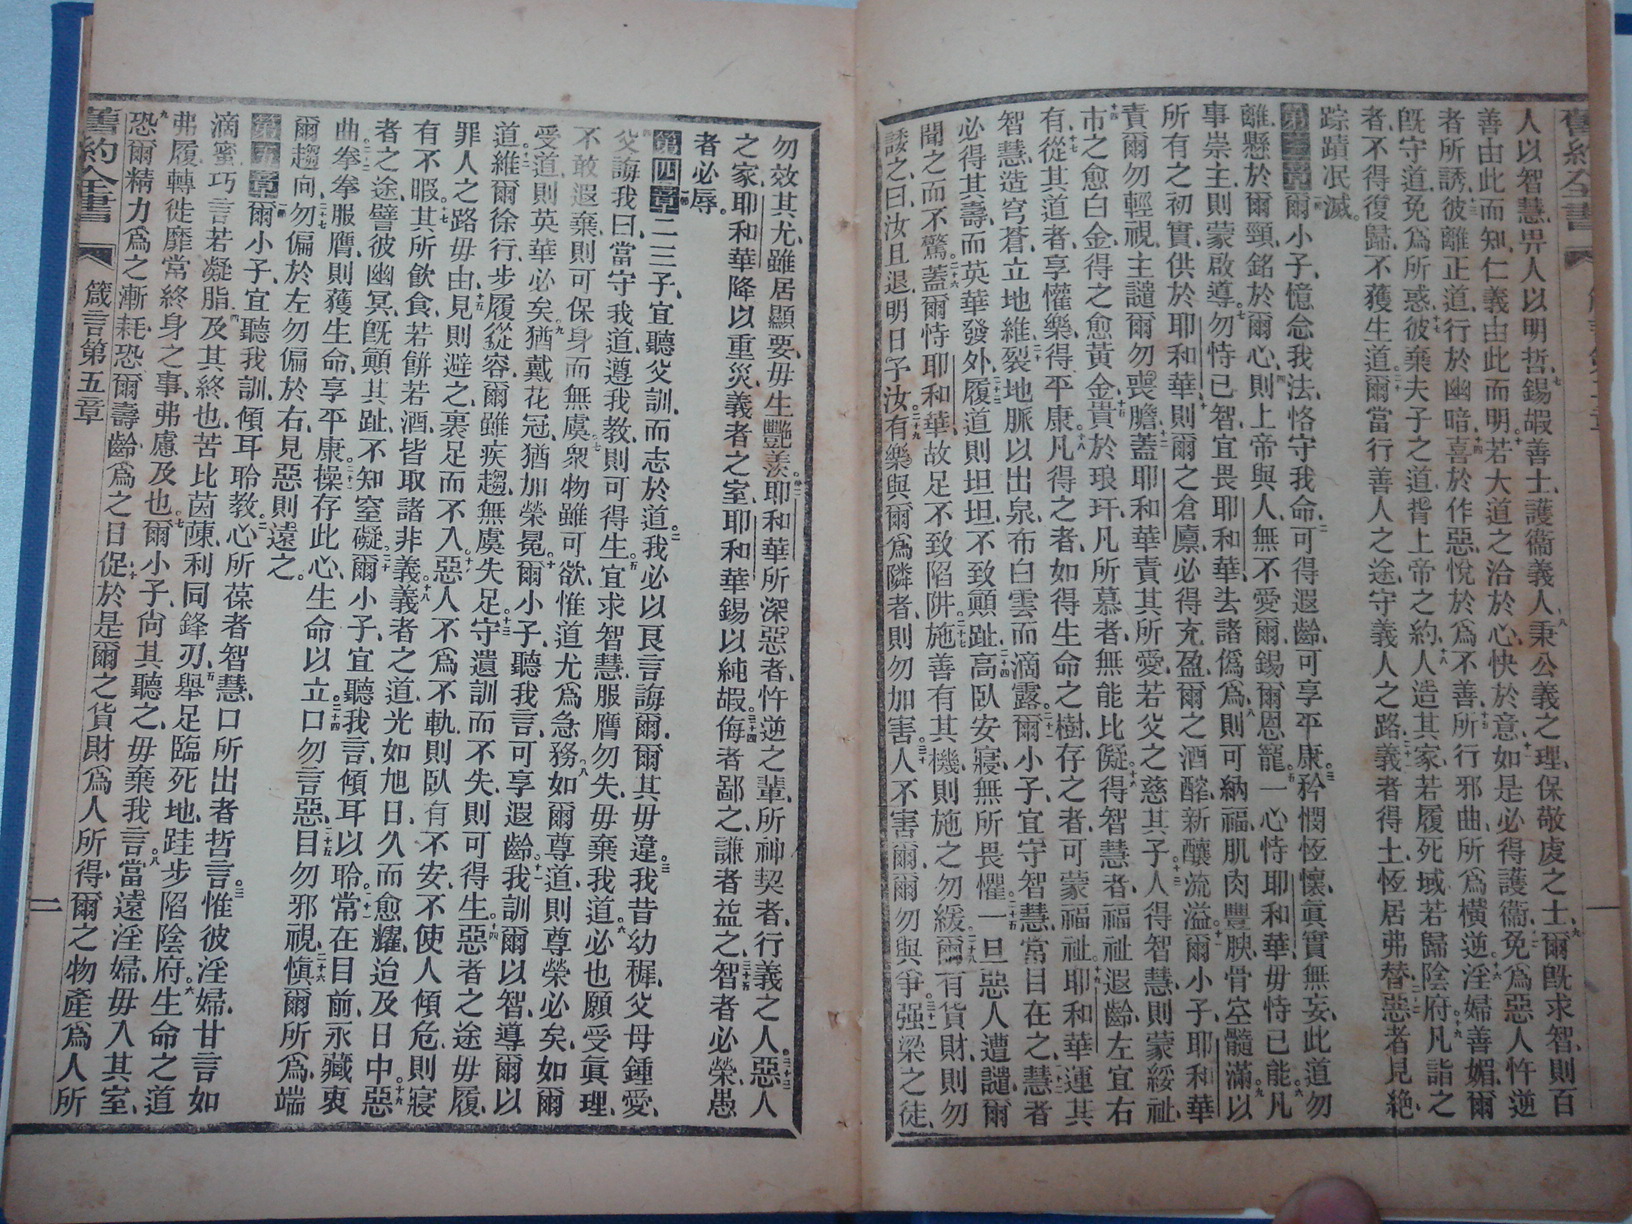 人以智慧、畀人以明哲、七錫嘏善士、護衞義人、八秉公義之理、保敬虔之士、九爾旣求智、則百
善由此而知、仁義由此而明、十若大道之洽於心、快於意、十一如是必得護衞、十二免爲惡人忤逆
者所誘、十三彼離正道、行於幽暗、十四喜於作惡、悅於爲不善、十五所行邪曲、所爲橫逆、十六淫婦善媚、爾
旣守道、免爲所惑、十七彼棄夫子之道、背上帝之約、十八人造其家、若履死域、若歸陰府、十九凡詣之
者、不得復歸、不獲生道、二十爾當行善人之途、守義人之路、二十一義者得土、恆居弗替、二十二惡者見絶、
踪蹟泯滅。
第三章一爾小子、憶念我法、恪守我命、二可得遐齡、可享平康。三矜憫恆懷、眞實無妄、此道勿
離、懸於爾頸、銘於爾心、四則上帝與人、無不愛爾、錫爾恩寵。五一心恃耶和華、毋恃已能、六凡
事崇主、則蒙啟導。七勿恃已智、宜畏耶和華、去諸僞爲、八則可納福、肌肉豐腴、骨空髓滿、九以
所有之初實、供於耶和華、十則爾之倉廩、必得充盈、爾之酒醡、新釀流溢。十一爾小子、耶和華
責爾勿輕視、主譴爾勿喪膽、十二蓋耶和華責其所愛、若父之慈其子。十三人得智慧、則蒙綏祉、
十四市之愈白金、得之愈黃金、十五貴於琅玕、凡所慕者、無能比儗、十六得智慧者、福祉遐齡、左宜右
有、十七從其道者、享懽樂、得平康、十八凡得之者、如得生命之樹、存之者、可蒙福祉、十九耶和華運其
智慧、造穹蒼、立地維、二十裂地脈以出泉、布白雲而滴露、二十一爾小子、宜守智慧、常目在之、二十二慧者
必得其壽、而英華發外、二十三履道則坦坦、不致顚趾、二十四高臥安寢、無所畏懼。二十五一旦惡人遭譴、爾
聞之而不驚、二十六蓋爾恃耶和華、故足不致陷阱、二十七施善有其機、則施之勿緩、二十八爾有貨財、則勿
諉之、曰、汝且退、明日予汝、二十九有樂與爾爲隣者、則勿加害、三十人不害爾、爾勿與爭、三十一强梁之徒、
勿效其尤、雖居顯要、毋生艷羨、三十二耶和華所深惡者、忤逆之輩、所神契者、行義之人、三十三惡人
之家、耶和華降以重災、義者之室、耶和華錫以純嘏、三十四侮者鄙之、謙者益之、三十五智者必榮、愚
者必辱。
第四章一二三子、宜聽父訓、而志於道、二我必以良言誨爾、爾其毋違、三我昔幼穉、父母鍾愛、
四父誨我曰、當守我道、遵我敎、則可得生、五宜求智慧、服膺勿失、毋棄我道、六必也願受眞理、
不敢遐棄、則可保身而無虞、七衆物雖可欲、惟道尤爲急務、八如爾尊道、則尊榮必矣、如爾
受道、則英華必矣、九猶戴花冠、猶加榮冕。十爾小子、聽我言、可享遐齡。十一我訓爾以智、導爾以
道、十二維爾徐行、步履從容、爾雖疾趨、無虞失足、十三守遺訓而不失、則可得生。十四惡者之途毋履、
罪人之路毋由、十五見則避之、裹足而不入、十六惡人不爲不軌、則臥有不安、不使人傾危、則寢
有不暇、十七其所飲食、若餅若酒、皆取諸非義、十八義者之道、光如旭日、久而愈耀、迨及日中、十九惡
者之途、譬彼幽冥、旣顚其趾、不知窒礙。二十爾小子、宜聽我言、傾耳以聆、二十一常在目前、永藏衷
曲、二十二拳拳服膺、則獲生命、享平康、二十三操存此心、生命以立、二十四口勿言惡、二十五目勿邪視、二十六愼爾所爲、端
爾趨向、二十七勿偏於左、勿偏於右、見惡則遠之。
第五章一爾小子、宜聽我訓、傾耳聆敎、二心所葆者智慧、口所出者哲言、三惟彼淫婦、甘言如
滴蜜、巧言若凝脂、四及其終也、苦比茵蔯、利同鋒刃、五舉足臨死地、跬步陷陰府、六生命之道
弗履、轉徙靡常、終身之事、弗慮及也、七爾小子、尙其聽之、毋棄我言、八當遠淫婦、毋入其室、
九恐爾精力、爲之漸耗、恐爾壽齡、爲之日促、十於是爾之貨財、爲人所得、爾之物產、爲人所
舊約全書 箴言第五章 二